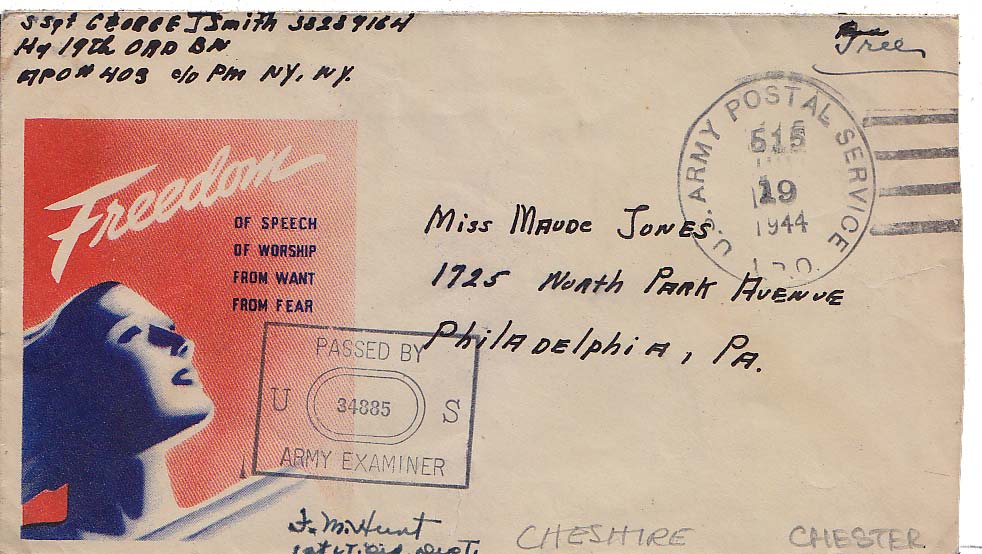 S Sgt GEORGE J Smith 38289164
Hq 19th ORD BN
APO# 403 c/o PM NY, NY.
Free
U.S. ARMY POSTAL SERVICE
515
19
1944
Freedom
OF SPEECH
OF WORSHIP
FROM WANT
FROM FEAR
Miss MAUDE JONES
1725 North PARK AVENUE
PhilADelphiA, PA.
PASSED BY
U 34885 S
ARMY EXAMINER
F. M. Hunt
1st Lt. Ord. Dept.
CHESHIRE CHESTER